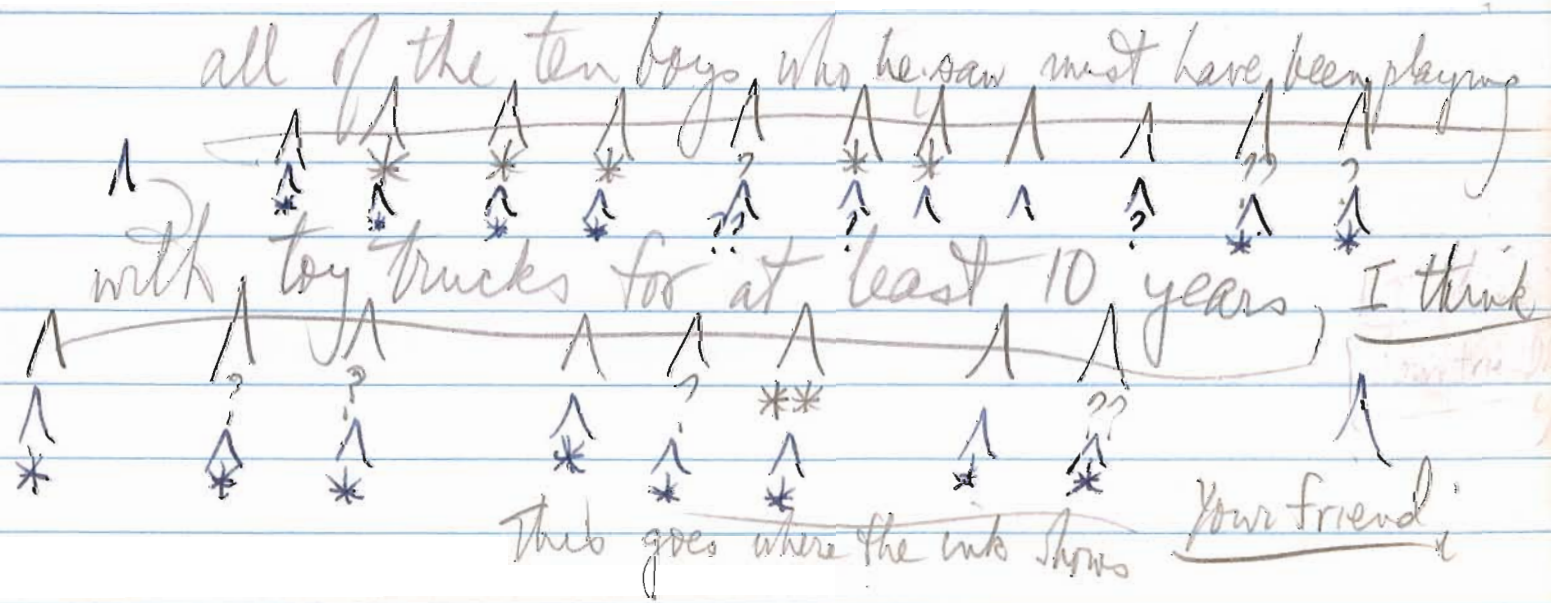 all of the ten boys who he saw must have been playing
with toy trucks for at least 10 years, I think
This goes where the ink shows Your friend,